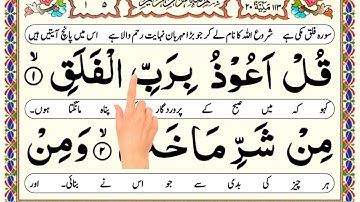 سورہ فلق مکی ہے شروع اللہ کا نام لے کر جو بڑا مہربان نہایت رحم والا ہے اس میں پانچ آیتیں ہیں
قُلْ اَعُوْذُ بِرَبِّ الْفَلَقِ ۙ ۱
کہو کہ میں صبح کے پروردگار پناہ مانگتا ہوں۔
مِنْ شَرِّ مَا ۙ ۲ وَمِنْ
ہر چیز کی بدی سے جو اس نے بنائی۔ اور